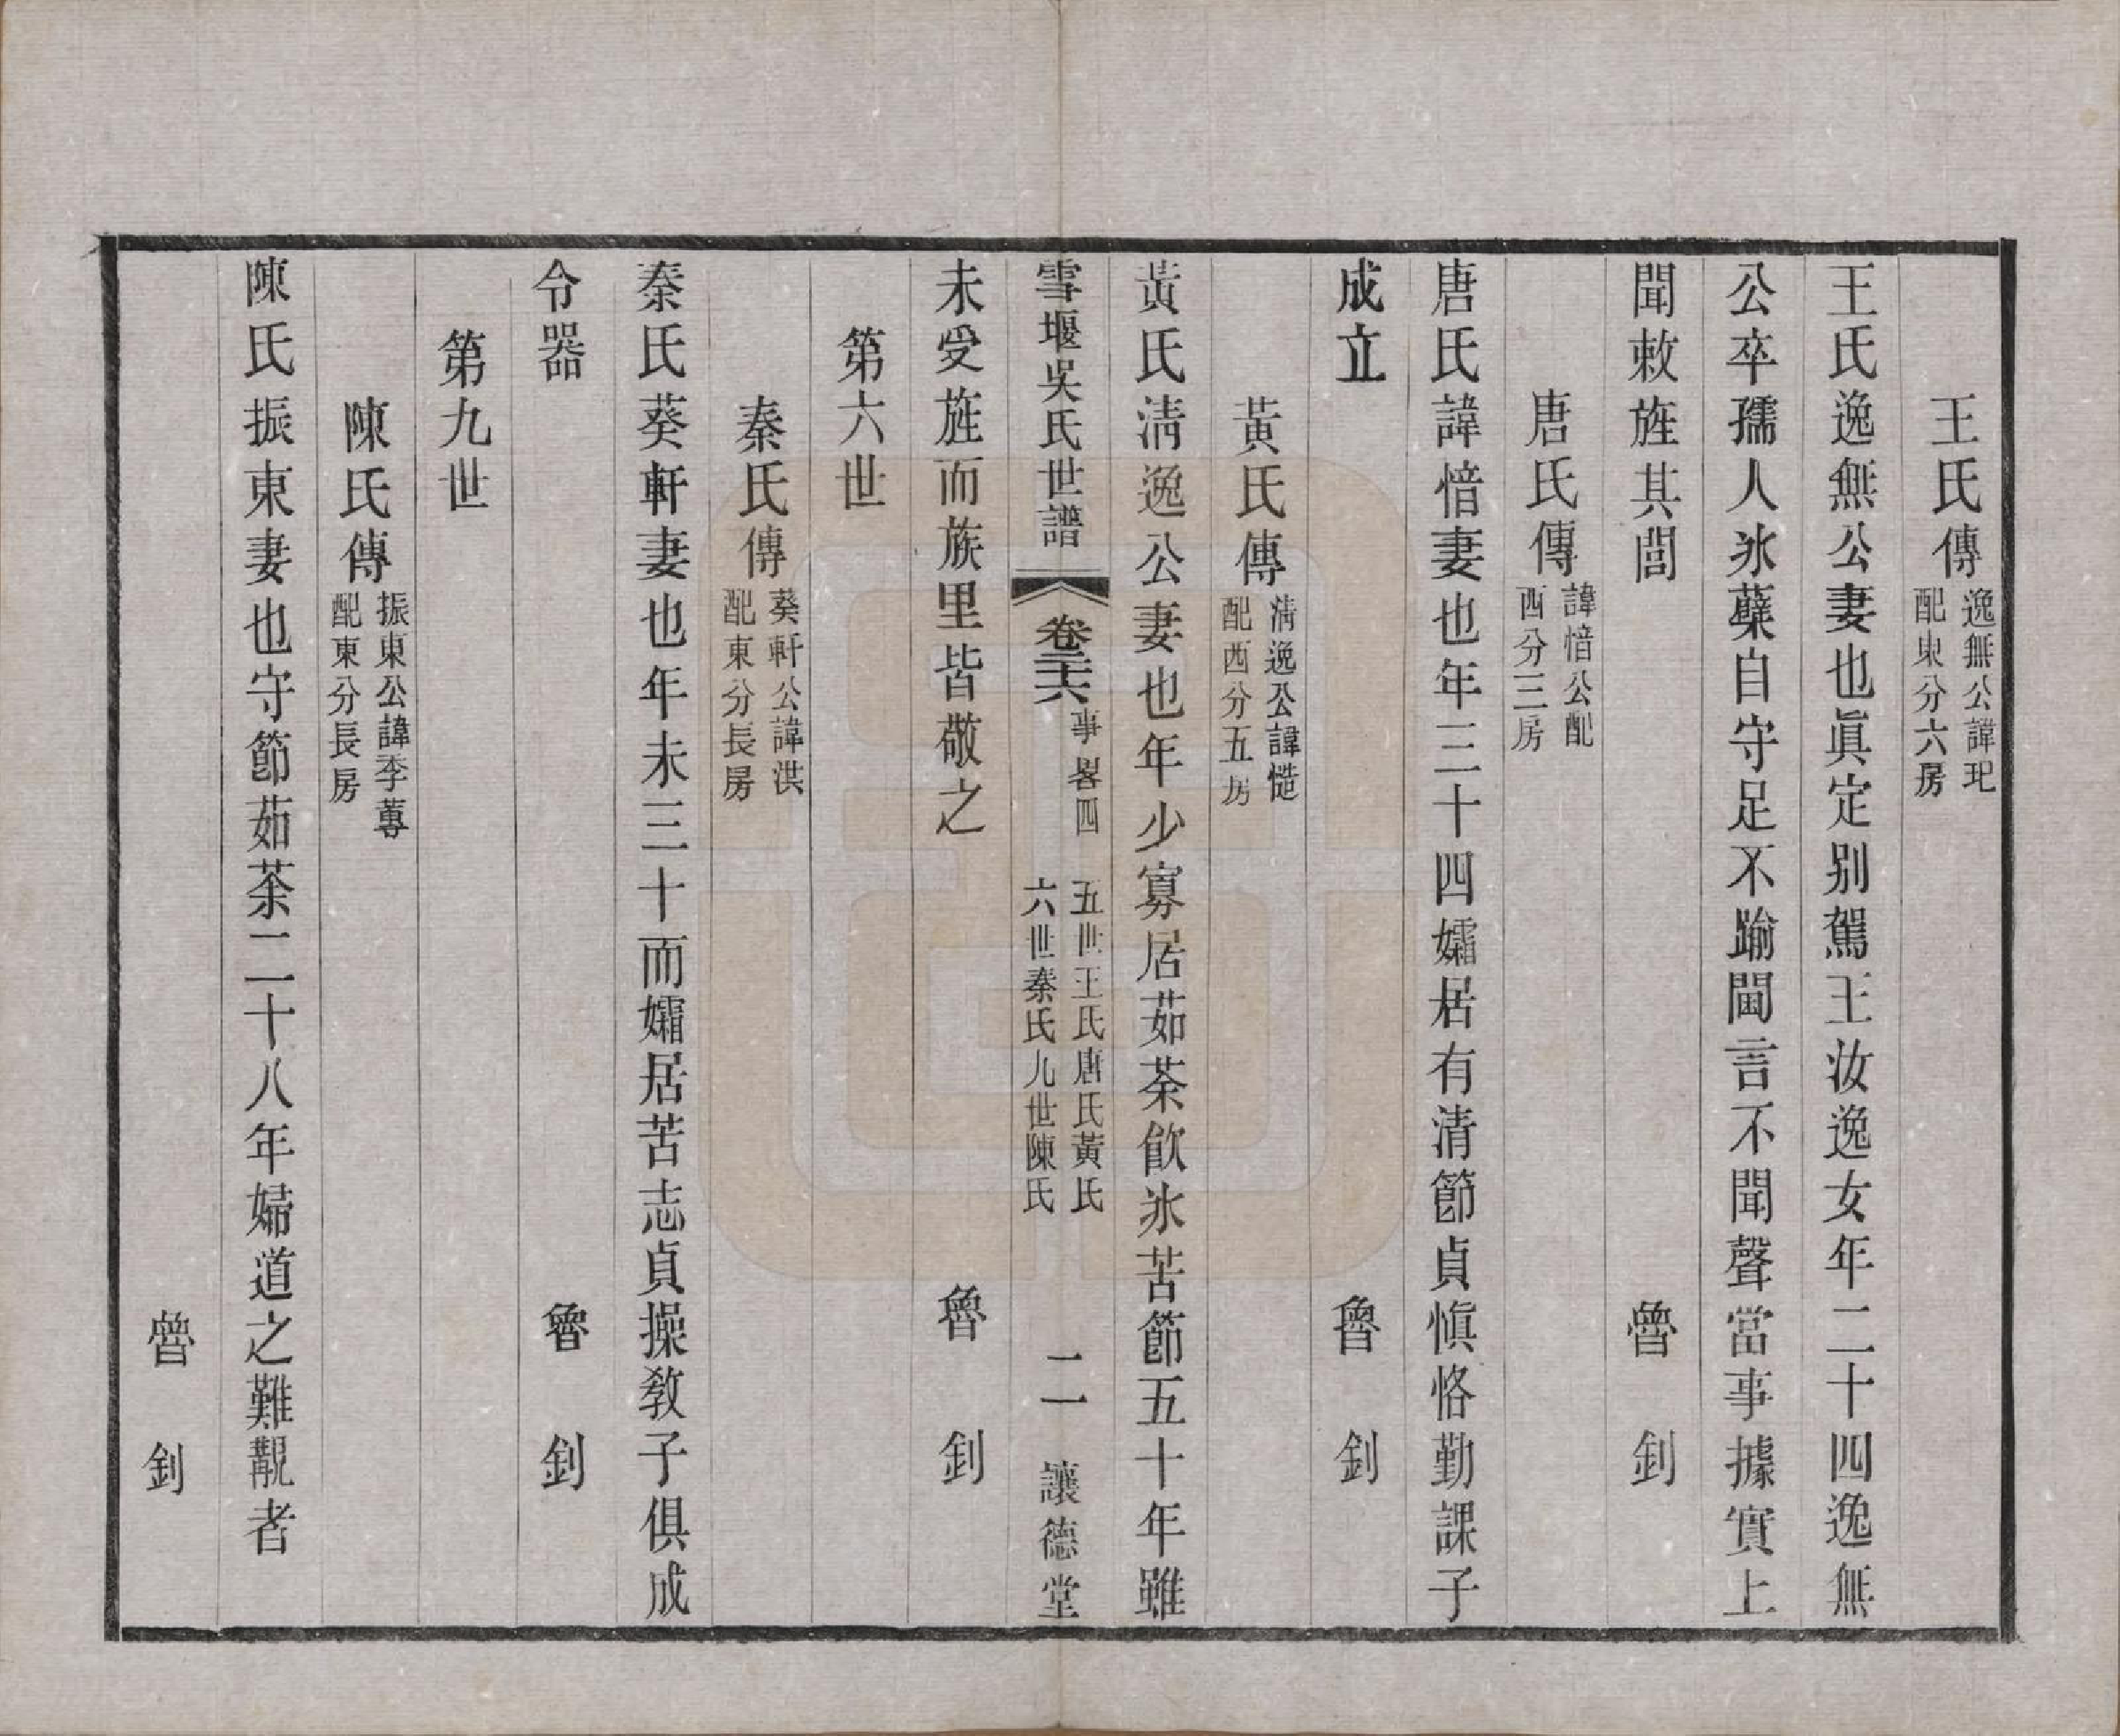 王氏傳 逸無公諱玘 配東分六房
王氏逸無公妻也眞定别駕王汝逸女年二十四逸無
公卒孺人氷蘗自守足不踰閫言不聞聲當事據實上
聞敕旌其閭 魯 釗
唐氏傳 諱愔公配 西分三房
唐氏諱愔妻也年三十四孀居有清節貞愼恪勤課子
成立 魯 釗
黃氏傳 清逸公諱慥 配西分五房
黃氏清逸公妻也年少寡居茹荼飲氷苦節五十年雖
雪堰吳氏世譜 卷二十六 事畧四 五世王氏唐氏黃氏 六世秦氏九世陳氏 二 讓德堂
未受旌而族里皆敬之 魯 釗
第六世
秦氏傳 葵軒公諱洪 配東分長房
秦氏葵軒妻也年未三十而孀居苦志貞操敎子俱成
令器 魯 釗
第九世
陳氏傳 振東公諱季蓴 配東分長房
陳氏振東妻也守節茹荼二十八年婦道之難覯者
魯 釗